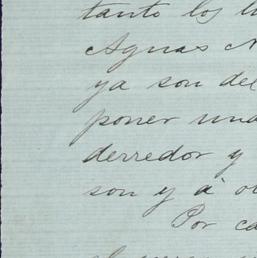 tanto los
Aguas
ya son de
poner una
derredor y
son y á
Por ca